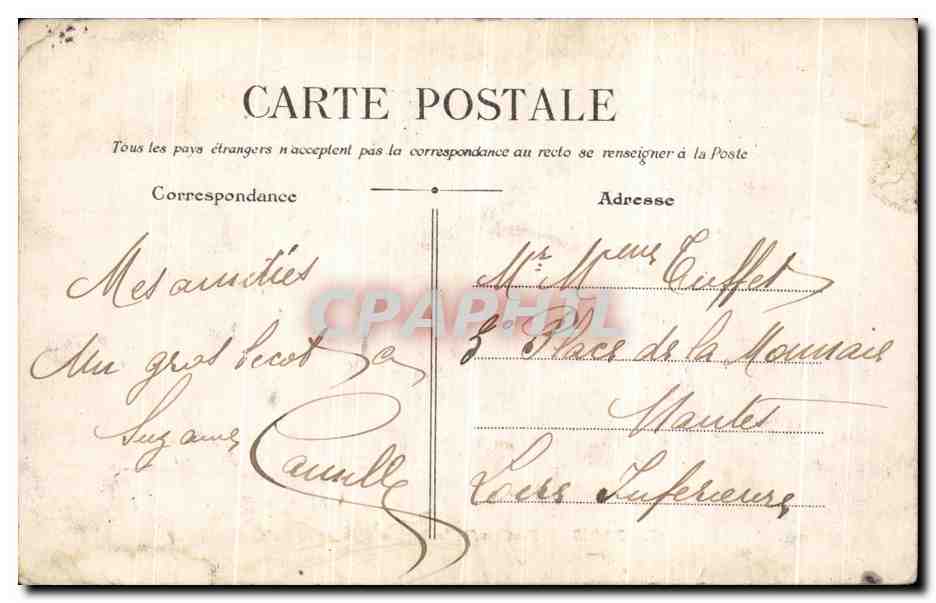 CARTE POSTALE
Tous les pays étrangers n'acceptent pas la correspondance au recto se renseigner à la Poste
Correspondance
Mes amitiés
Un gros becot à
Suzanne
Camille
Adresse
Mr. Mme Tuffet
3 Place de la Monnaie
Nantes
Loire Inferieure
CPAPHIL